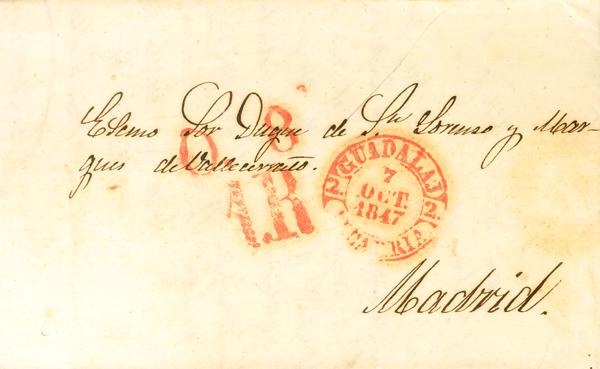 8
Escmo Sor Duque de Sn Lorenzo y Mar-
ques de Vallecerrato.
O
1.R
GUADALAJ
2 2
7
OCT.
1847
ALCARRIA
Madrid.